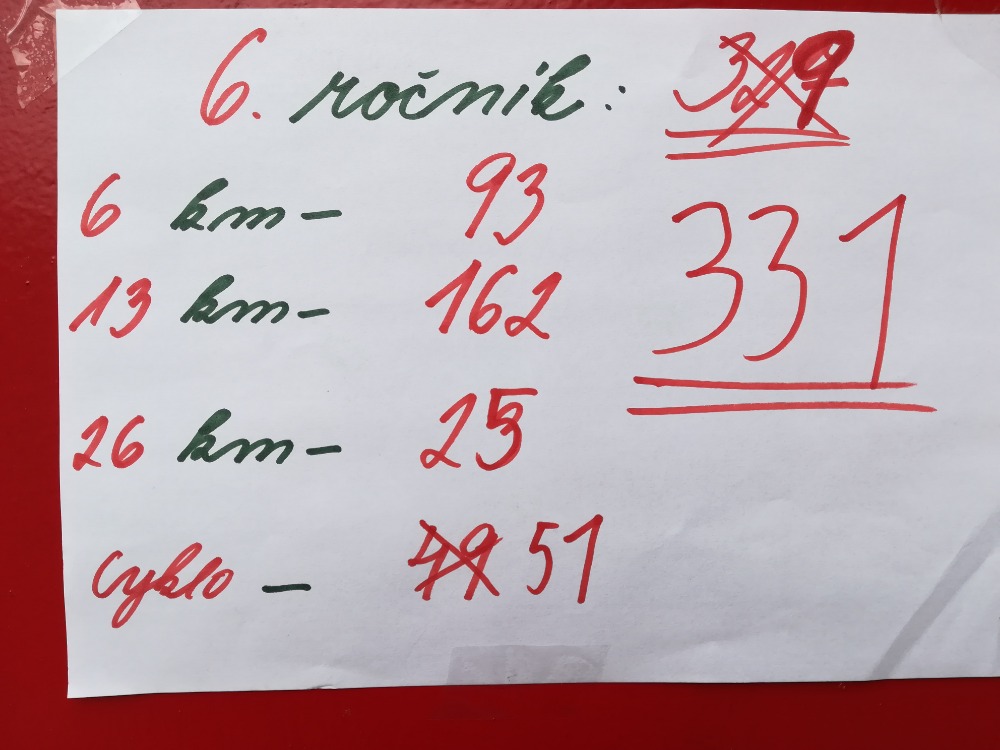 6. ročník: 329
331
6 km - 93
13 km - 162
26 km - 25
cyklo - 49 51